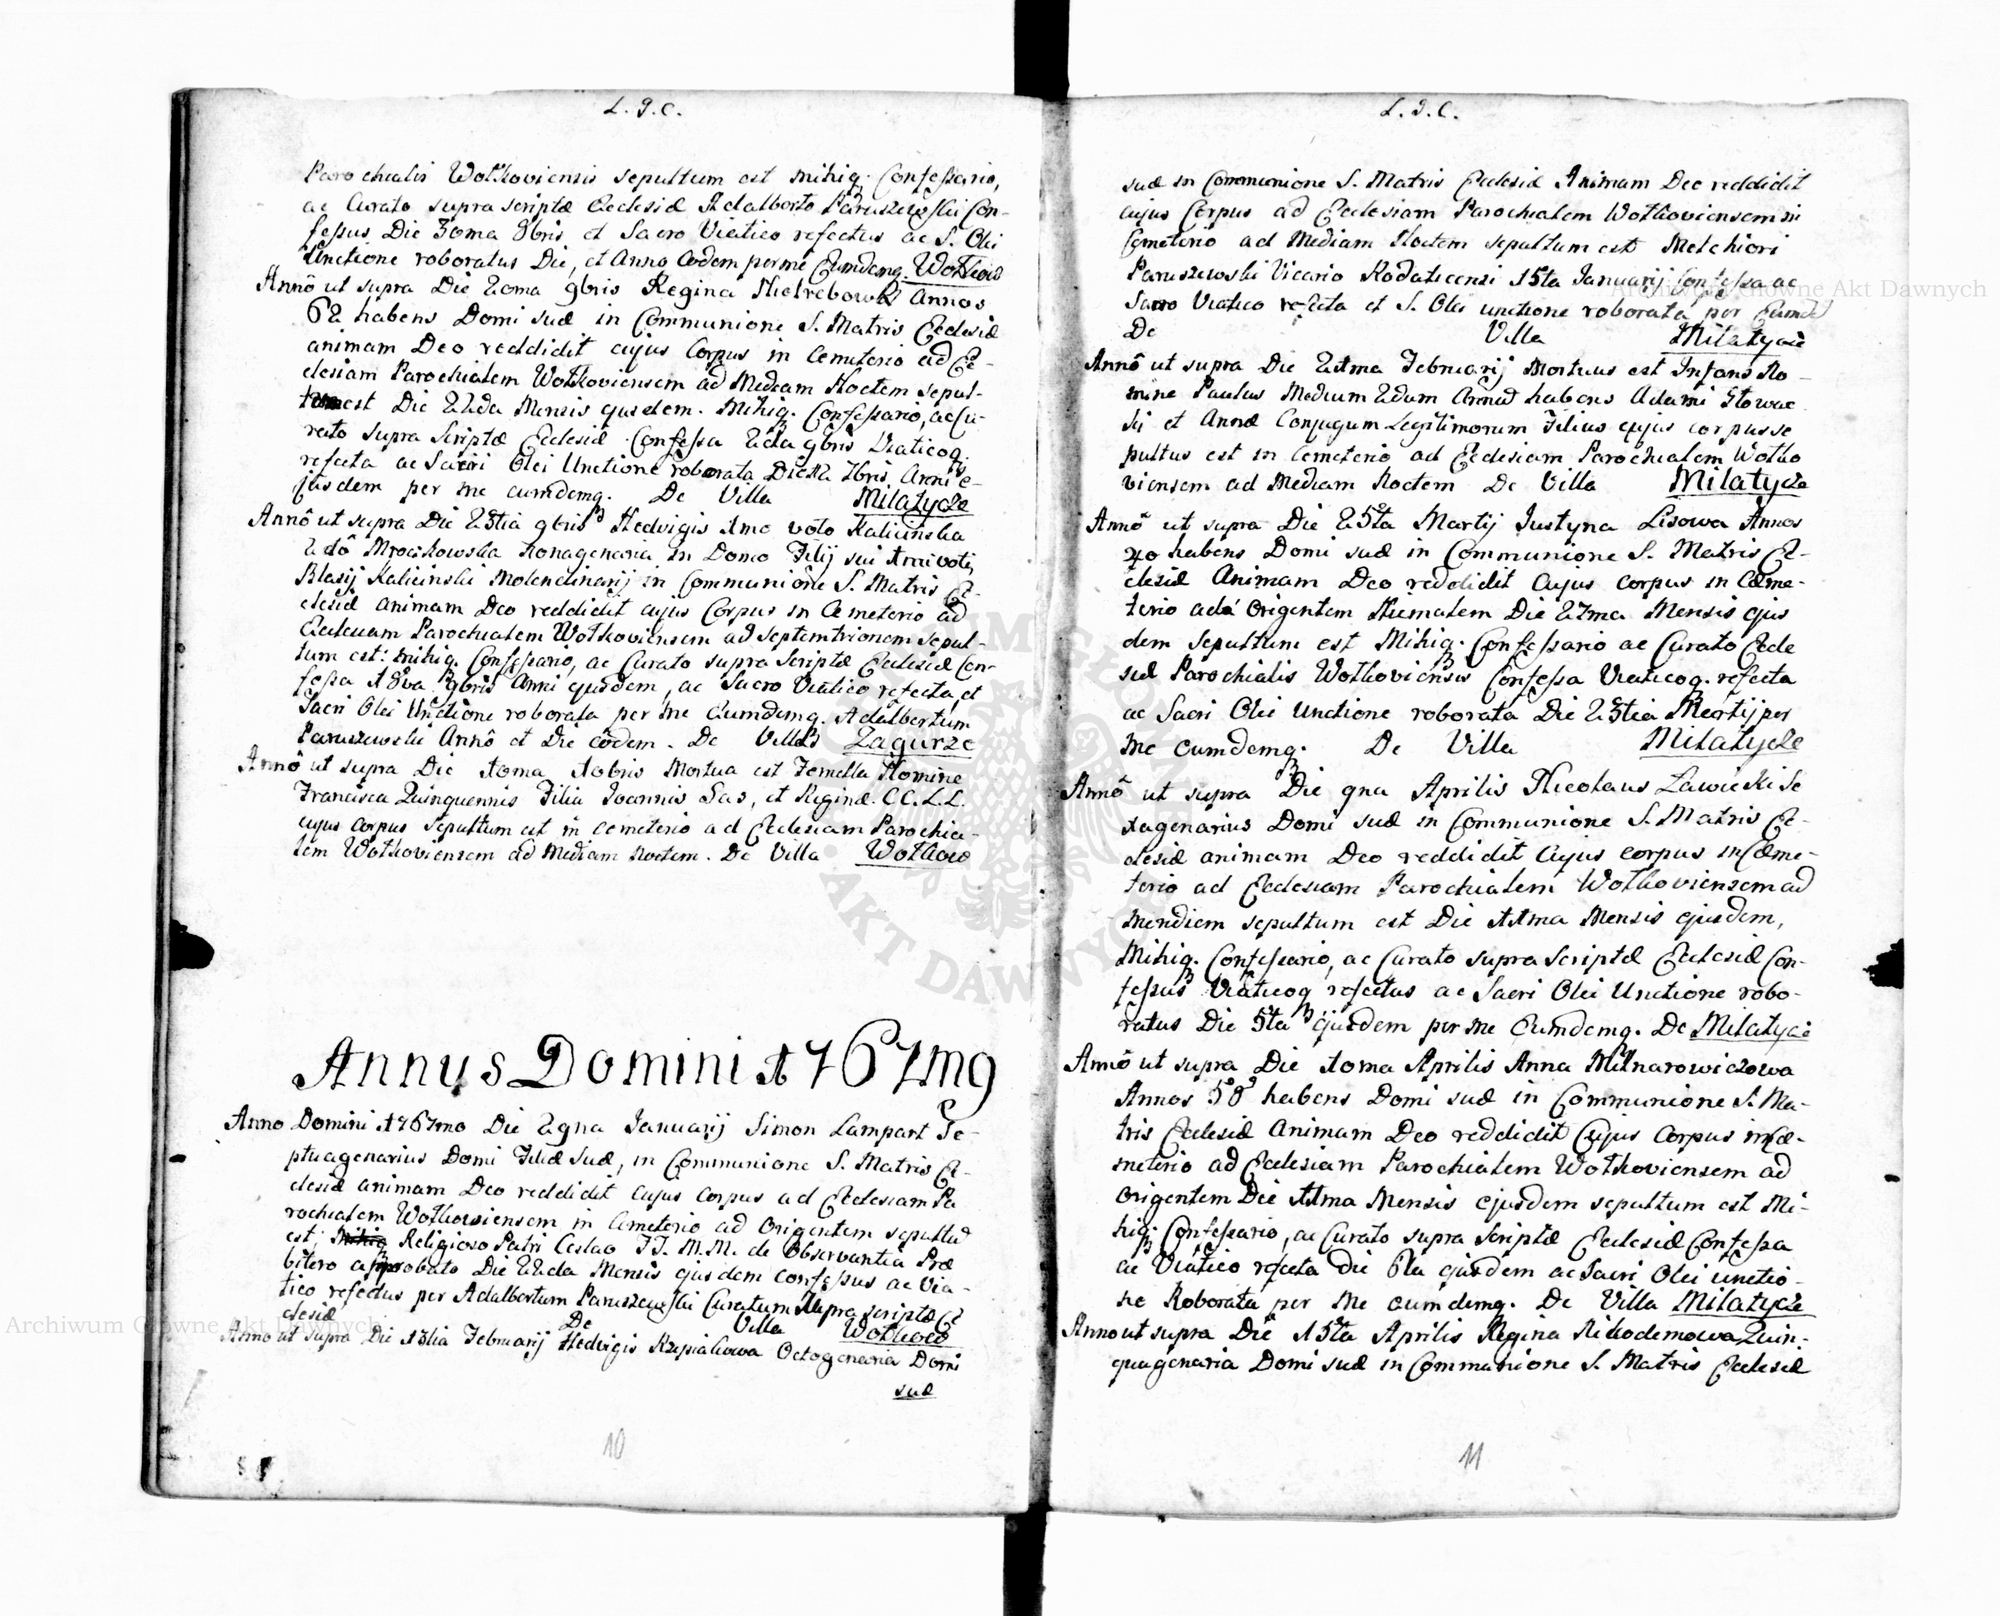 L. J. C.
Parochialis Wołkoviensis sepultum est mihiq. Confessario,
ac Curato supra scriptæ Ecclesiæ Adalberto Paruszewski Con-
fessus Die 30ma 8bris et Sacro Viatico refectus ac S. Olei
Unctione roboratus Die, et Anno eodem per me Eumdemq. Wołkow
Annô ut supra Die 20ma 9bris Regina Nietrebowa Annos
62 habens Domi suæ in Communione S. Matris Ecclesiæ
animam Deo reddidit cujus Corpus in Cemeterio ad Ec-
clesiam Parochialem Wołkoviensem ad Mediam Noctem sepul-
tum est Die 22da Mensis ejusdem. Mihiq. Confessario, ac Cu-
rato supra scriptæ Ecclesiæ Confessa 2da 9bris Viaticoq.
refecta ac Sacri Olei Unctione roborata Anni e-
jusdem per me eumdemq. De Villa Milatycze
Annô ut supra Die 23tia 9bris Hedvigis 1mo voto Kalicinska
2dô Mroczkowska Nonagenaria in Domo Filij sui 1mi voti,
Blasij Kalicinski Molendinarij in Communione S. Matris Ec-
clesiæ animam Deo reddidit cujus Corpus in Cemeterio ad
Ecclesiam Parochialem Wołkoviensem ad Septemtrionem sepul-
tum est: mihiq. Confessario, ac Curato supra scriptæ Ecclesiæ Con-
fessa 18va 9bris Anni ejusdem, ac Sacro Viatico refecta, et
Sacri Olei Unctione roborata per me Eumdemq. Adalbertum
Paruszewski Annô et Die eôdem. De Villa Zagurze
Annô ut supra Die 10ma Xbris Mortua est Femella Nomine
Francisca Quinquennis Filia Joannis Sas, et Reginæ. CC. L. L.
cujus corpus sepultum est in cemeterio ad Ecclesiam Parochia-
lem Wołkoviensem ad Mediam Noctem. De Villa Wołkow
Annus Domini 1767mq
Anno Domini 1767mo Die 29na Januarij Simon Lampart Se-
ptuagenarius Domi Filiæ suæ, in Communione S. Matris Ec-
clesiæ animam Deo reddidit cujus corpus ad Ecclesiam Pa
rochialem Wołkoviensem in Cemeterio ad Origentem sepultu
est, Religioso Patri Ceslao FF. M. M. de Observantia Præ
bitero approbato Die 22da Mensis ejusdem confessus ac Via-
tico refectus per Adalbertum Paruszewski Curatum supra scriptæ Ec
clesiæ De Villa Wołkow
Anno ut supra Die 13tia Februarij Hedvigis Rzepiakowa Octogenaria Domi
suæ
10
L. J. C.
suæ in Communione S. Matris Ecclesiæ Animam Deo reddidit
cujus Corpus ad Ecclesiam Parochialem Wołkoviensem in
Cemeterio ad Mediam Noctem sepultum est Melchiori
Paruszewski Vicario Rodaticensi 15ta Januarij Confessa ac
Sacro Viatico refecta et S. Olei unctione roborata per Eumd
De Villa Milatycze
Annô ut supra Die 21ma Februarij Mortuus est Infans No-
mine Paulus Medium 2dum Annu habens Adami Słowac
ki et Annæ Conjugum Legitimorum Filius cujus corpus se
pultus est in Cemeterio ad Ecclesiam Parochialem Wołko
viensem ad Mediam Noctem De Villa Milatycze
Annô ut supra Die 25ta Martij Justyna Lisowa Annos
40 habens Domi suæ in Communione S. Matris Ec-
clesiæ Animam Deo reddidit Cujus Corpus in Cæme-
terio ad Origentem Hiemalem Die 27ma Mensis ejus
dem sepultum est Mihiq. Confessario ac Curato Eccle
siæ Parochialis Wołkoviensis Confessa Viaticoq. refecta
ac Sacri Olei Unctione roborata Die 23tia Martij per
me eumdemq. De Villa Milatycze
Annô ut supra Die 9na Aprilis Nicolaus Zawicki Se
xagenarius Domi suæ in Communione S. Matris Ec-
clesiæ animam Deo reddidit Cujus corpus in Cæme-
terio ad Ecclesiam Parochialem Wołkoviensem ad
meridiem sepultum est Die 11ma Mensis ejusdem,
Mihiq. Confessario, ac Curato supra scriptæ Ecclesiæ Con-
fessus Viaticoq refectus ac Sacri Olei Unctione robo-
ratus Die 5ta ejusdem per me Eumdemq. De Milatycze
Annô ut supra Die 10ma Aprilis Anna Młnarowiczowa
Annos 58 habens Domi suæ in Communione S. Ma-
tris Ecclesiæ Animam Deo reddidit Cujus Corpus in Cæ-
meterio ad Ecclesiam Parochialem Wołkoviensem ad
Origentem Die 11ma Mensis ejusdem sepultum est Mi-
hiq. Confessario, ac Curato supra scriptæ Ecclesiæ Confessa
ac Viatico refecta die 6ta ejusdem ac Sacri Olei unctio-
ne Roborata per me eumdemq. De Villa Milatycze
Anno ut supra Die 15ta Aprilis Regina Nikodemowa Quin-
quagenaria Domi suæ in Communione S. Matris Ecclesiæ
11
Archiwum Główne Akt Dawnych
Archiwum Główne Akt Dawnych
ARCHIWUM GŁÓWNE AKT DAWNYCH